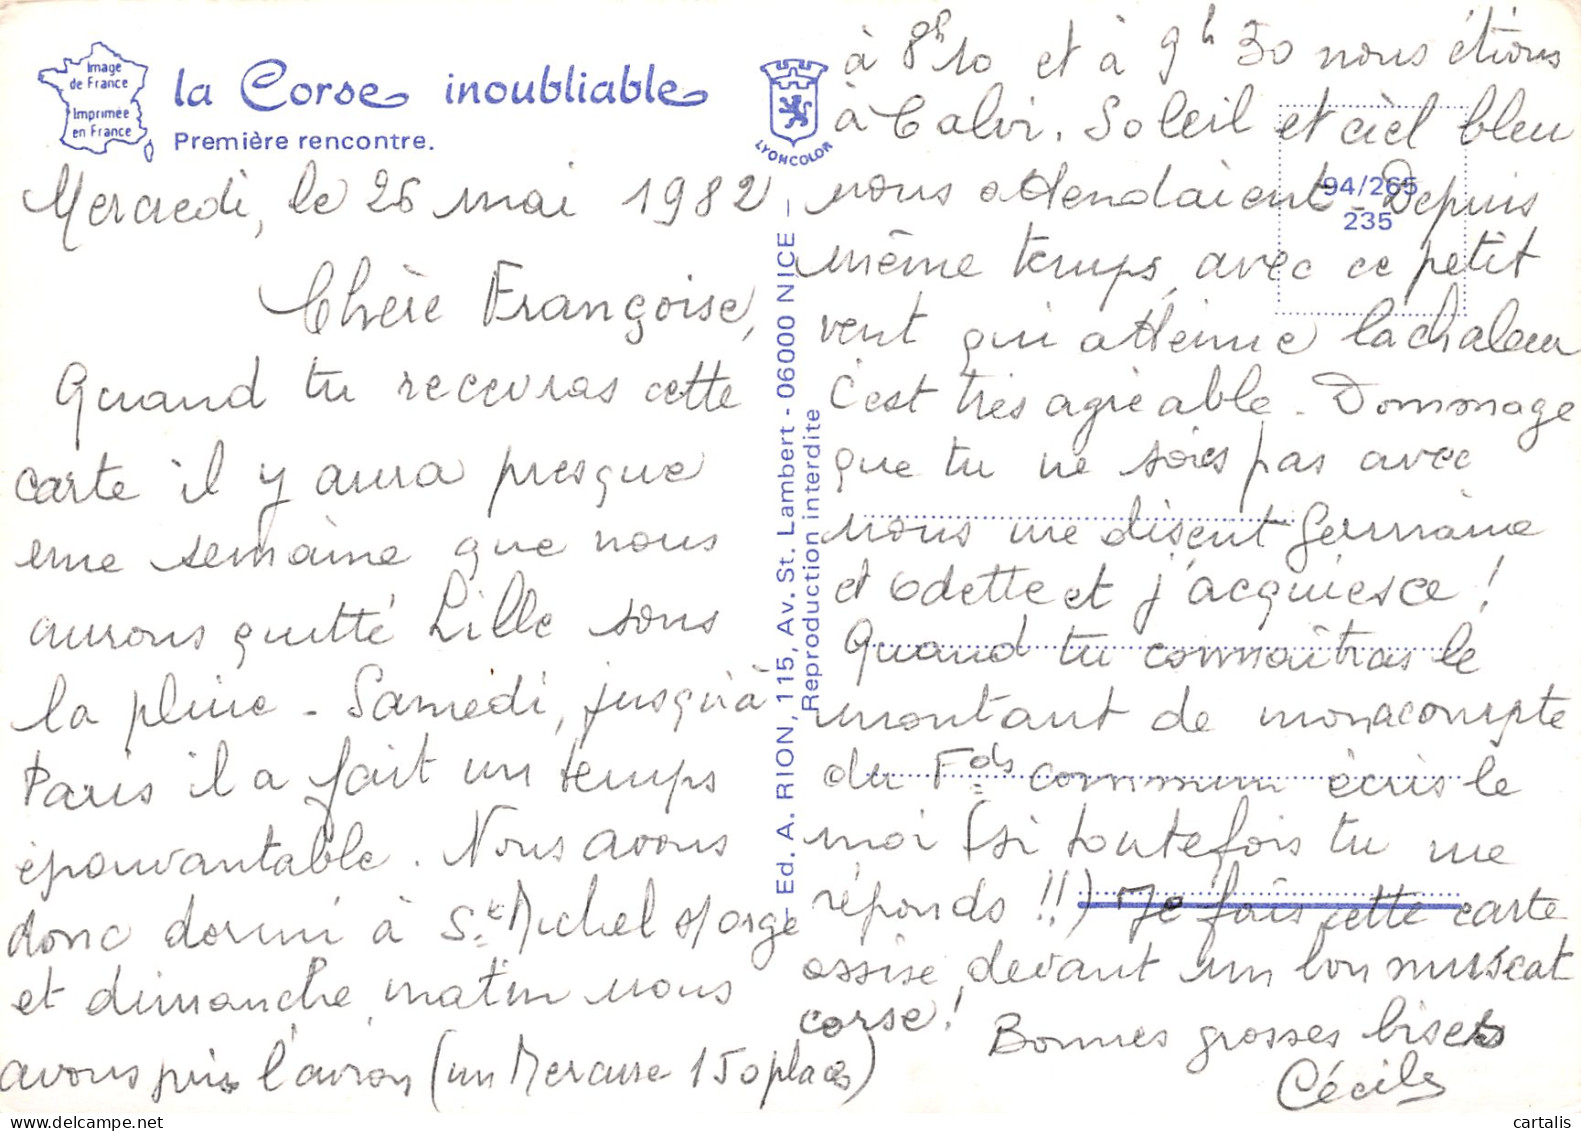 Image
de France
Imprimée
en France
la Corse inoubliable
Première rencontre.
LYONCOLOR
94/265
235
Mercredi, le 26 mai 1982
Chère Françoise,
Quand tu recevras cette
carte il y aura presque
une semaine que nous
aurons quitté Lille sous
la pluie - Samedi, jusqu'à
Paris il a fait un temps
épouvantable. Nous avons
donc dormi à St. Michel s/orge
et dimanche matin nous
avons pris l'avion (un Mercure 150 places)
à 8h10 et à 9h30 nous étions
à Calvi. Soleil et ciel bleu
nous attendaient - Depuis
même temps, avec ce petit
vent qui atténue la chaleur
C'est très agréable - Dommage
que tu ne sois pas avec
nous me disent Germaine
et Odette et j'acquiesce !
Quand tu connaîtras le
montant de mon acompte
du Fds commun écris le
moi (si toutefois tu me
réponds !!) Je fais cette carte
assise devant un bon muscat
corse !
Bonnes grosses bises
Cécile
Ed. A. RION, 115, Av. St. Lambert - 06000 NICE -
Reproduction interdite
cartalis